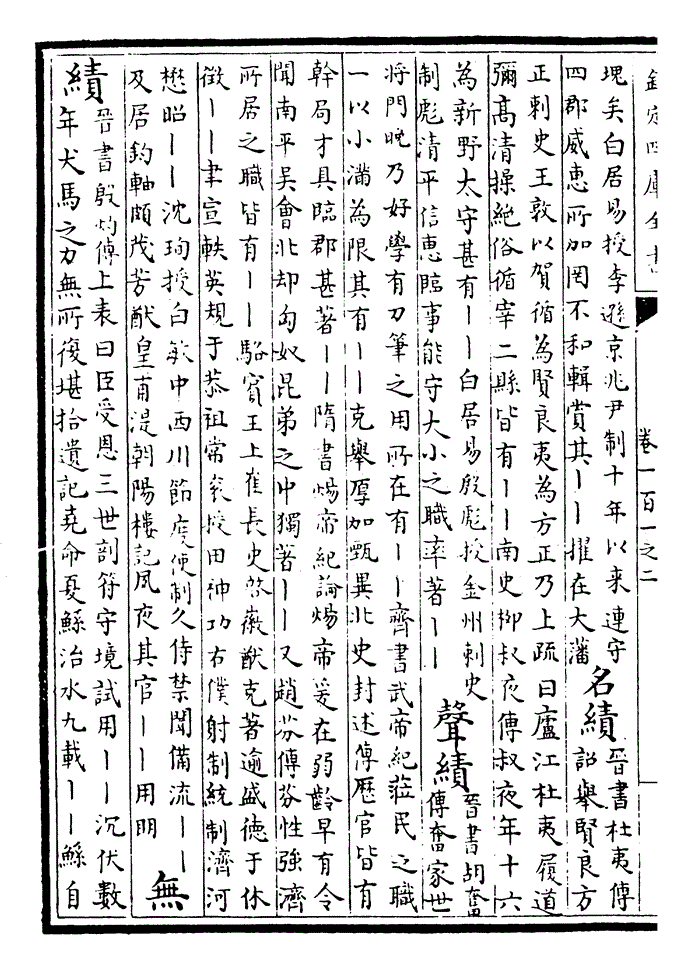 欽定四庫全書
卷一百一之二
塊矣白居易授李遜京兆尹制十年以來連守
四郡威惠所加罔不和輯賞其丨丨擢在大藩
名績
晉書杜夷傳
詔舉賢良方
正刺史王敦以賀循為賢良夷為方正乃上疏曰廬江杜夷履道
彌高清操絕俗循宰二縣皆有丨丨南史柳叔夜傳叔夜年十六
為新野太守甚有丨丨白居易殷彪授金州刺史
制彪清平信惠臨事能守大小之職率著丨丨
聲績
晉書胡奮
傳奮家世
將門晚乃好學有刀筆之用所在有丨丨齊書武帝紀蒞民之職
一以小滿為限其有丨丨克舉厚加甄異北史封述傳歷官皆有
幹局才具臨郡甚著丨丨隋書煬帝紀論煬帝爰在弱齡早有令
聞南平吳會北却匈奴昆弟之中獨著丨丨又趙芬傳芬性強濟
所居之職皆有丨丨駱賓王上崔長史啟徽猷克著逾盛德于休
徵丨丨聿宣軼英規于恭祖常衮授田神功右僕射制統制濟河
懋昭丨丨沈珣授白敏中西川節度使制久侍禁闈備流丨丨
及居鈞軸頗茂芳猷皇甫湜朝陽樓記夙夜其官丨丨用明
無
績
晉書殷灼傳上表曰臣受恩三世剖符守境試用丨丨沉伏數
年犬馬之力無所復堪拾遺記堯命夏鯀治水九載丨丨鯀自